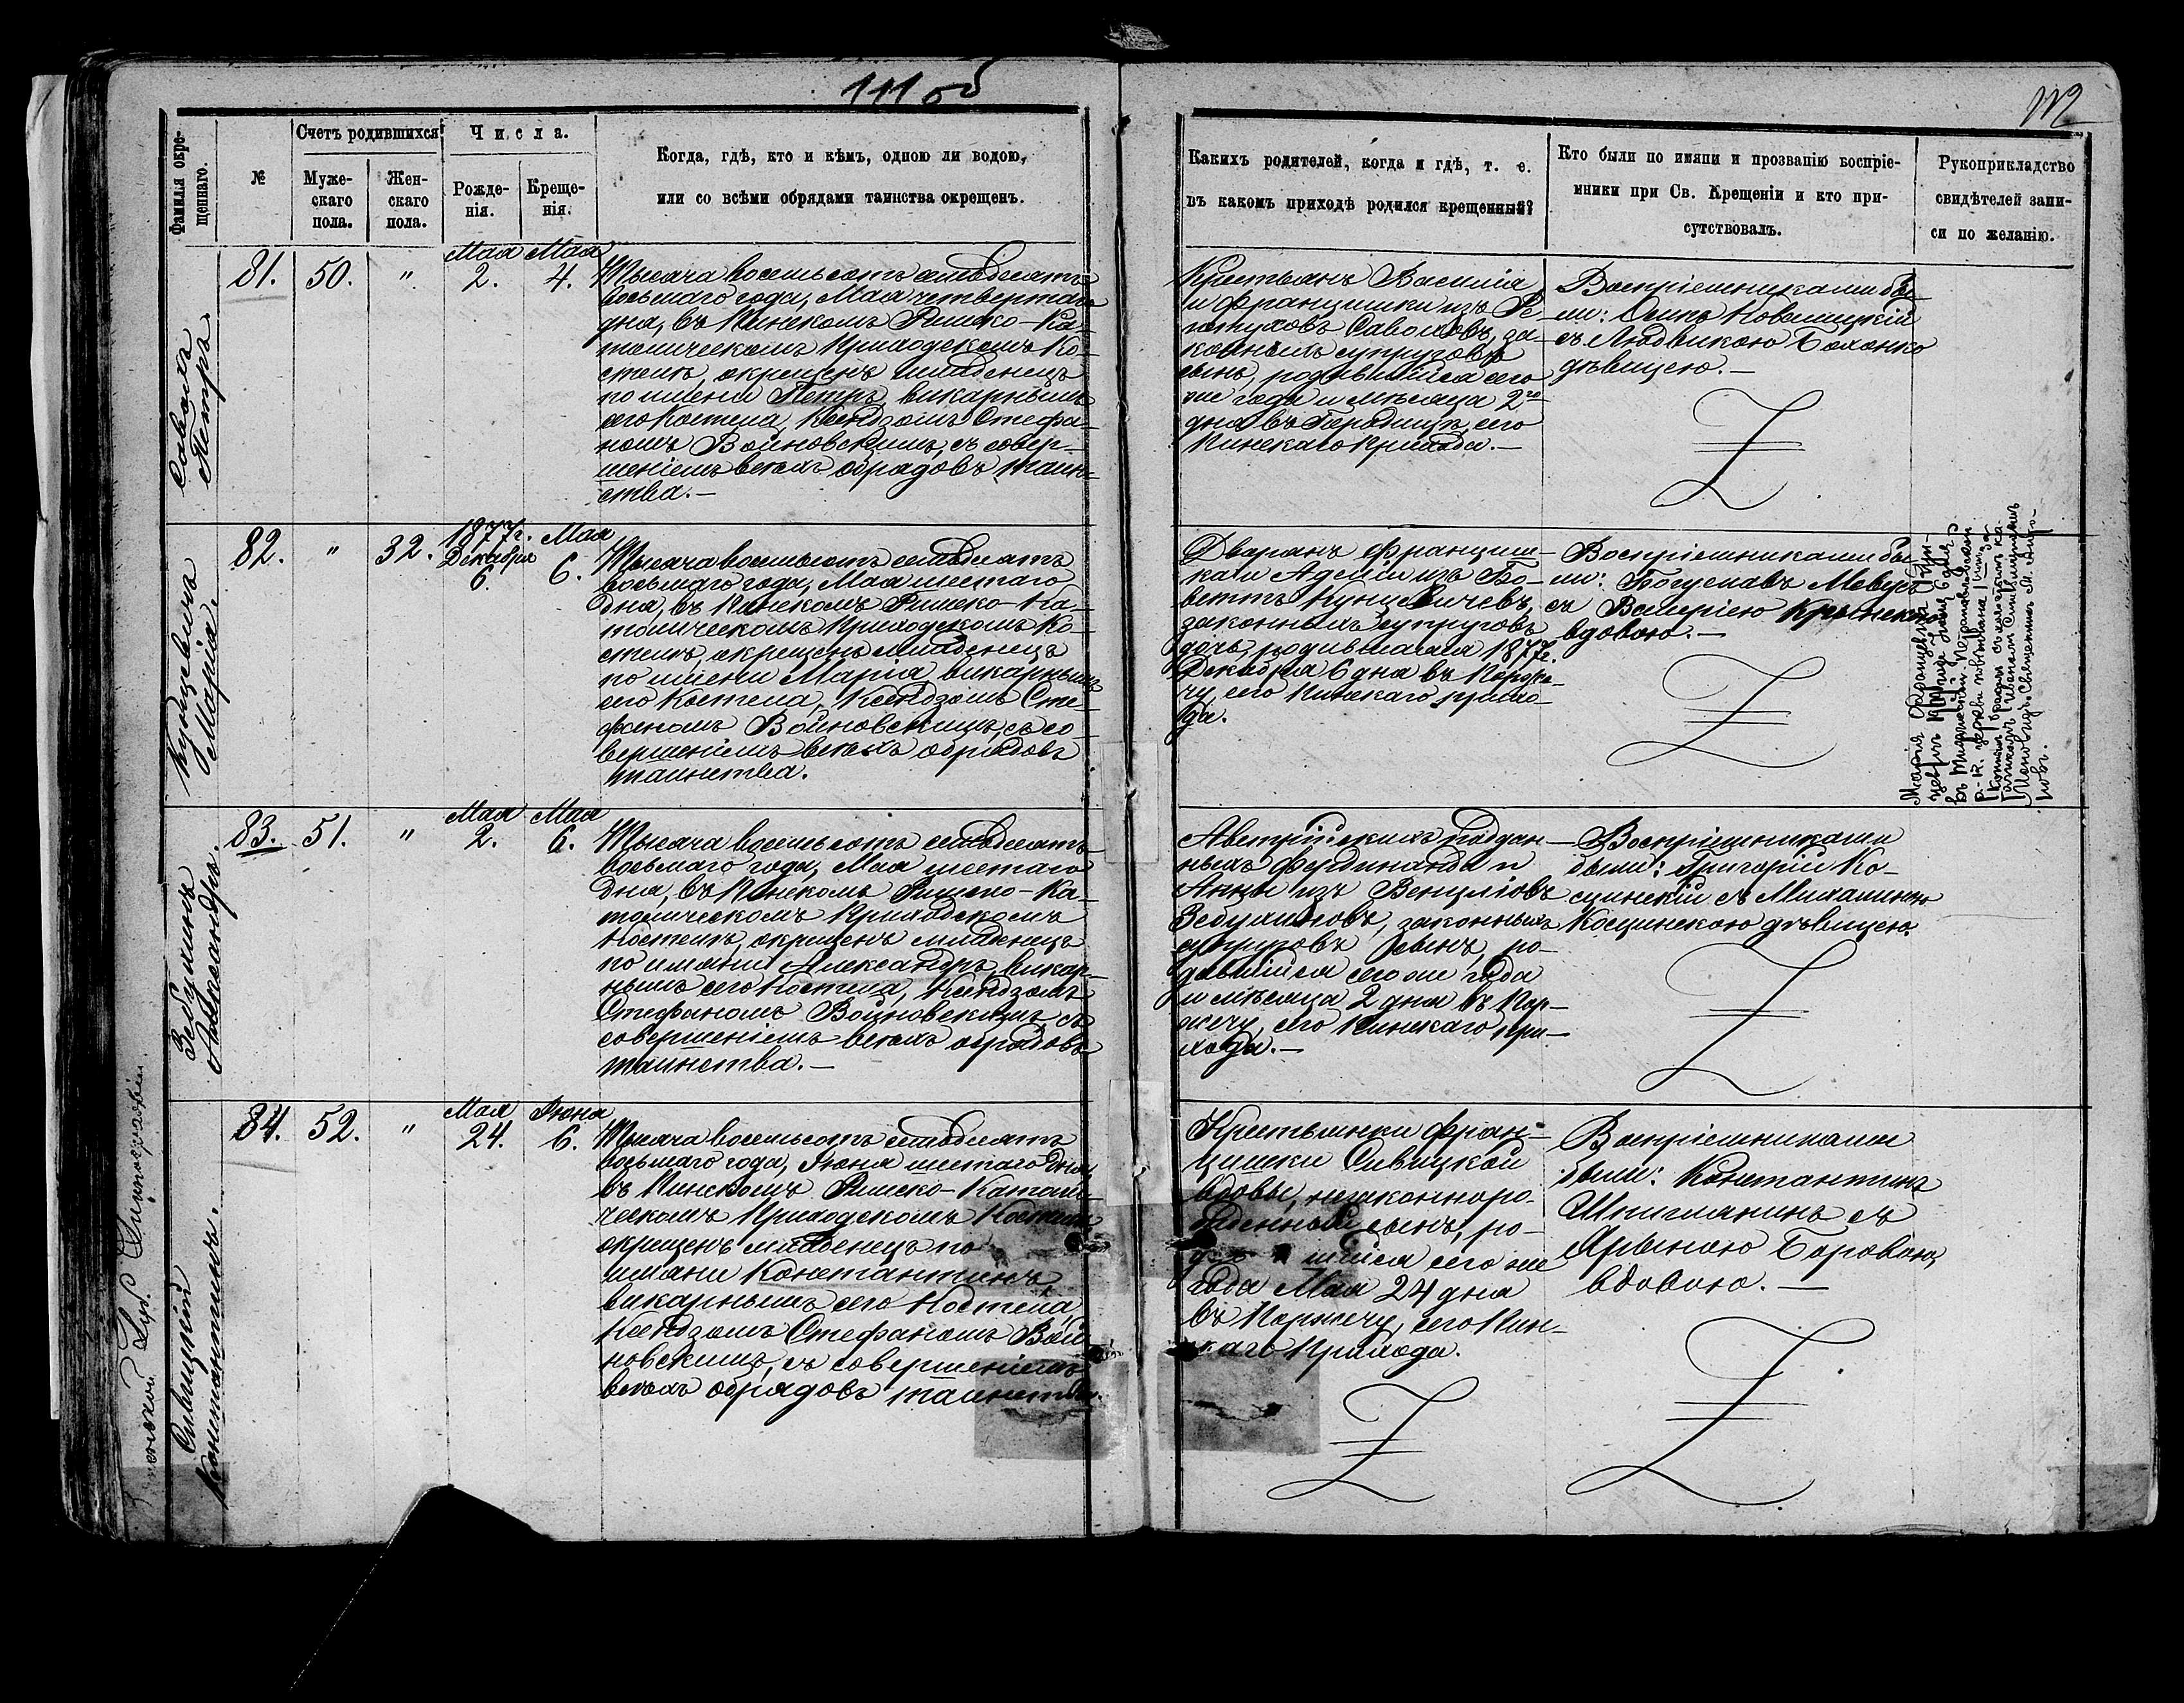 111 об
112
Фамилія окре-
щеннаго.
№
Счетъ родившихся
Муже-
скаго
пола.
Жен-
скаго
пола.
Числа.
Рожде-
нія.
Креще-
нія.
Когда, гдѣ, кто и кѣмъ, одною ли водою,
или со всѣми обрядами таинства окрещенъ.
Какихъ родителей, когда и гдѣ, т. е.
въ какомъ приходѣ родился крещенный?
Кто были по имяни и прозванію воспріе-
мники при Св. Крещеніи и кто при-
сутствовалъ.
Рукоприкладство
свидѣтелей запи-
си по желанію.
Савохъ
Петръ.
81.
50.
"
Мая
2.
Мая
4.
Тысяча восемьсотъ семьдесятъ
восьмаго года, Мая четвертаго
дня, въ Пинскомъ Римско-Ка-
толическомъ Приходскомъ Ко-
стелѣ, окрещенъ младенецъ
по имени Петръ, викарнымъ
сего Костела, Ксендзомъ Стефа-
номъ Войновскимъ, съ совер-
шеніемъ всѣхъ обрядовъ таин-
ства.—
Крестьянъ Василія
и Францишки изъ
законныхъ супруговъ
сынъ, родившійся сего
же года и мѣсяца 2го
дня въ Городищѣ, сего
Пинскаго Прихода.—
Воспріемниками бы-
ли: Осипъ Новомицкій
съ Людвикою Бохонко
дѣвицею.—
Кунцевичъ
Марія.
82.
"
32.
1877г.
Декабря
6.
Мая
6.
Тысяча восемьсотъ семьдесятъ
восьмаго года, Мая шестаго
дня, въ Пинскомъ Римско-Ка-
толическомъ Приходскомъ Ко-
стелѣ, окрещенъ младенецъ
по имени Марія, викарнымъ
сего Костела, Ксендзомъ Сте-
фаномъ Войновскимъ, съ со-
вершеніемъ всѣхъ обрядовъ
таинства.
Дворянъ Францишка
и Аделіи изъ
Кунцевичевъ,
законныхъ супруговъ
дочь, родившаяся 1877г.
Декабря 6 дня въ Порѣ-
чу, сего Пинскаго прихо-
да.
Воспріемниками бы-
ли: Богуславъ
съ Валеріею
вдовою.—
Зебулинъ
Александръ.
83.
51.
"
Мая
2.
Мая
6.
Тысяча восемьсотъ семьдесятъ
восьмаго года, Мая шестаго
дня, въ Пинскомъ Римско-Ка-
толическомъ Приходскомъ
Костелѣ, окрещенъ младенецъ
по имяни Александръ, викар-
нымъ сего Костела, Ксендзомъ
Стефаномъ Войновскимъ, съ
совершеніемъ всѣхъ обрядовъ
таинства.—
Австрійскихъ поддан-
ныхъ Фердинанда и
Анны изъ Венцліовъ
Зебулиновъ, законныхъ
супруговъ сынъ, ро-
дившійся сего же года
и мѣсяца 2 дня въ Пор-
жечу, сего Пинскаго при-
хода.—
Воспріемниками
были: Григорій Ко-
сцинскій съ Михалиною
Косцинскою дѣвицею.
Сивицкій
Константинъ.
84.
52.
"
Мая
24.
Іюня
6.
Тысяча восемьсотъ семьдесятъ
восьмаго года, Іюня шестаго дня
въ Пинскомъ Римско-Католи-
ческомъ Приходскомъ Костелѣ
окрещенъ младенецъ по
имяни Константинъ,
викарнымъ сего Костела,
Ксендзомъ Стефаномъ Вой-
новскимъ, съ совершеніемъ
всѣхъ обрядовъ таинства.
Крестьянки Фран-
цишки Сивицкой
вдовы, незаконноро-
жденный сынъ, ро-
шійся сего же
года Мая 24 дня
въ Поржечу, сего Пин-
скаго Прихода.
Воспріемниками
были: Константинъ
съ
Арыною Боровою,
вдовою.—